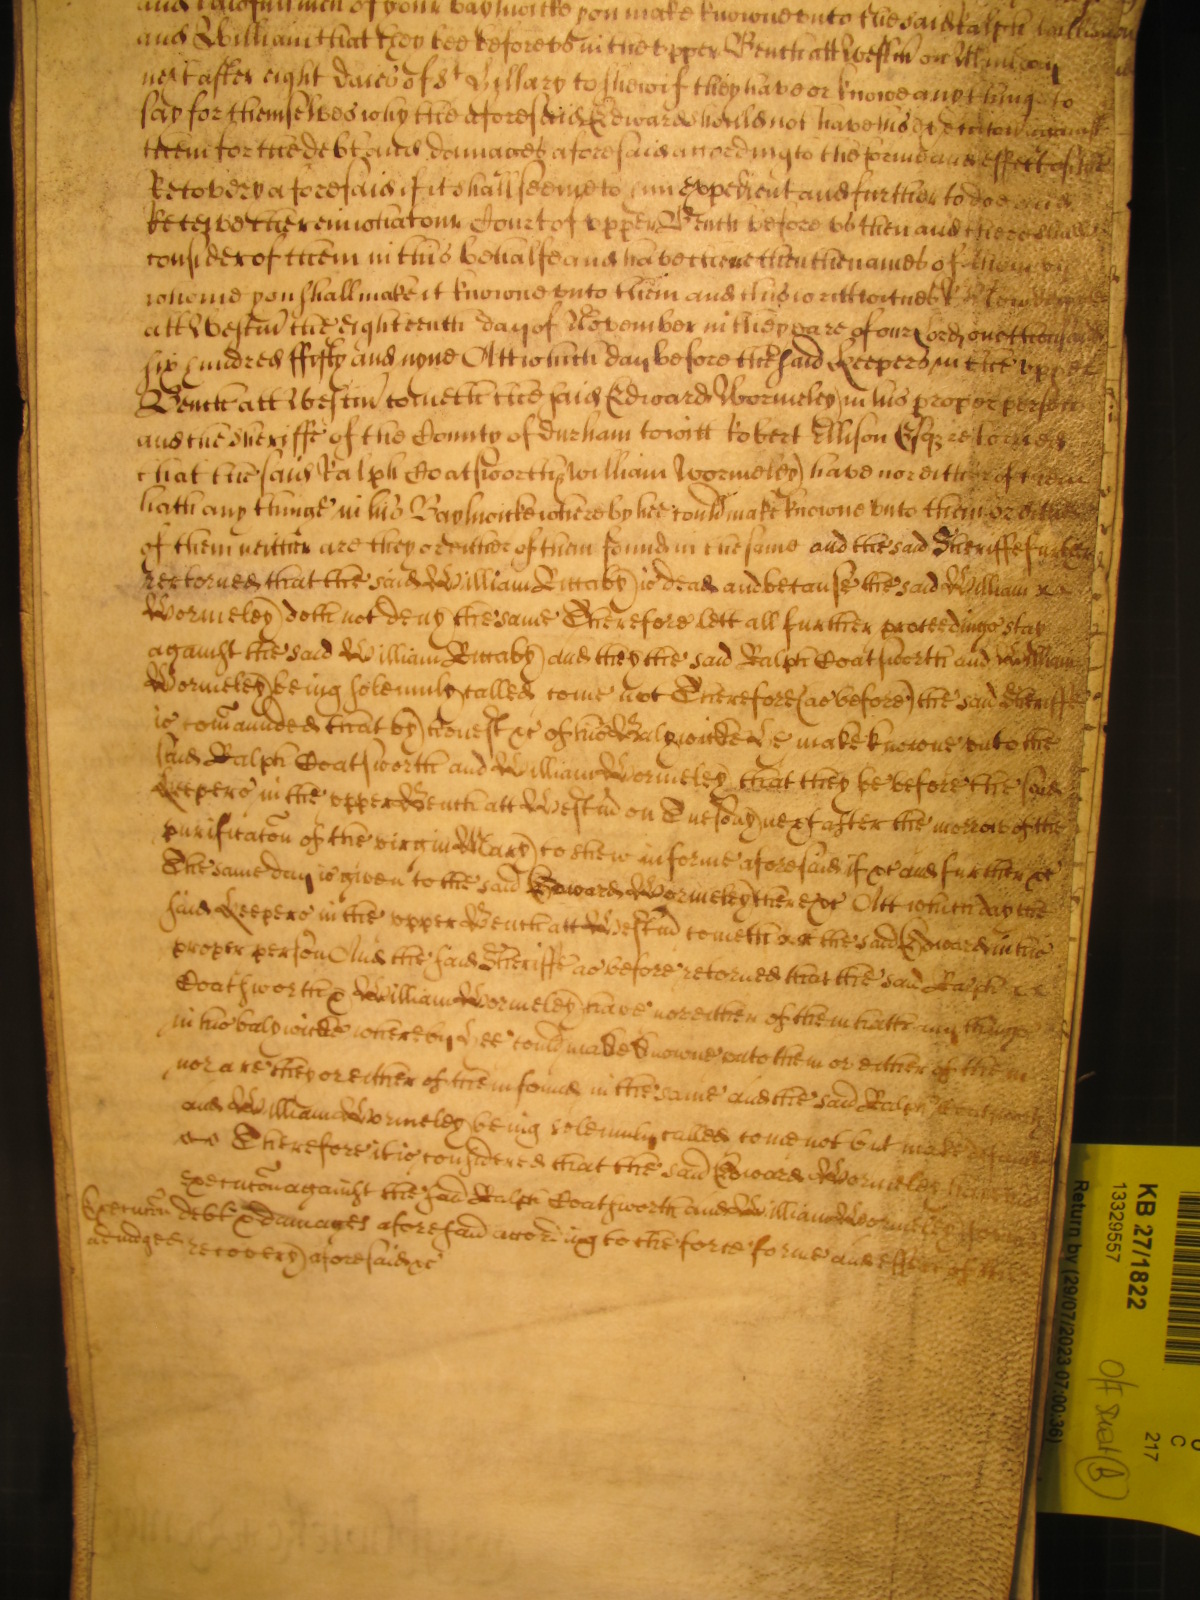 and lawfull men of your Baylwicke you make knowne unto the said Ralph
and William that they bee before us in the upper Bench att Westm on Munday
next after eight daies of St Hillary to shew if they have or knowe any thinge to
say for themselves why the aforesaid Edward should not have his execution against
them for the debt and damages aforesaid according to the forme and effect of the
Recovery aforesaid if it shall seeme to him expedient and further to doe and
Receive there in what our Court of upper Bench before us then and there shall
consider of them in this behalfe and have there then the names of them by
whome you shall make it knowne unto them and this writt witnes
att Westm the eighteenth day of November in the yeare of our Lord one thousand
six hundred fifty and nyne Att which day before the said Keepers in the upper
Bench att Westm cometh the said Edward Wormeley in his proper person
and the Sheriffe of the County of Durham towitt Robert Ellison Esqr retornes
that the said Ralph Coatsworth & William Wormeley have nor either of them
hath any thinge in his Baylwicke whereby hee could make knowne unto them or either
of them neither are they or either of them found in the same and the said Sheriffe further
retorned that the said William Rittaby is dead and because the said William
Wormeley doth not deny the same Therefore lett all further proceedings stay
against the said William Rittaby and they the said Ralph Coatsworth and William
Wormeley being solemnly called come not Therefore (as before) the said Sheriffe
is comaunded that by honest &c of his Balywicke hee make knowne unto the
said Ralph Coatsworth and William Wormeley that they be before the said
Keepers in the upper Bench att Westm on Tuesday next after the morrow of the
purificacon of the virgin Mary to shew in forme aforesaid if &c and further &c
The same day is given to the said Edward Wormeley there &c Att which day the
said Keepers in the upper Bench att Westm cometh the said Edward in his
proper person And the said Sheriffe as before retorned that the said Ralph
Coatsworth & William Wormeley have nor either of them hath any thinge
in his balywicke whereby hee could make knowne unto them or either of them
nor are they or either of them found in the same and the said Ralph Coatsworth
and William Wormeley being solemnly called come not but made default
Therefore it is considered that the said Edward Wormeley have his
execucon against the said Ralph Coatsworth and William Wormeley for the
Execucon debt & damages aforesaid according to the force forme and effect of the
adiudged recovery aforesaid &c
KB 27/1822
13329557
Return by (29/07/2023 07:00:36)
217
C